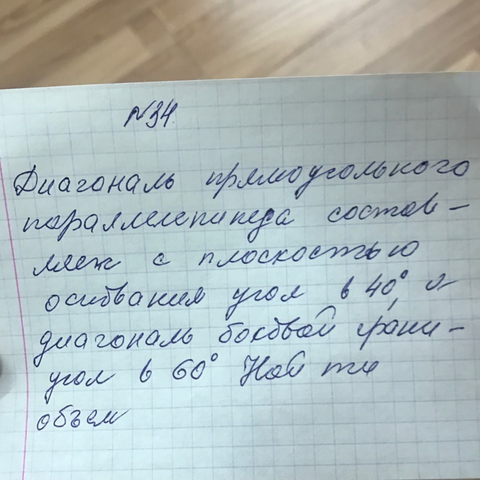 №34.
Диагональ прямоугольного
параллелепипеда состав-
ляет с плоскостью
основания угол в 40°, а
диагональ боковой грани-
угол в 60° Найти
объем